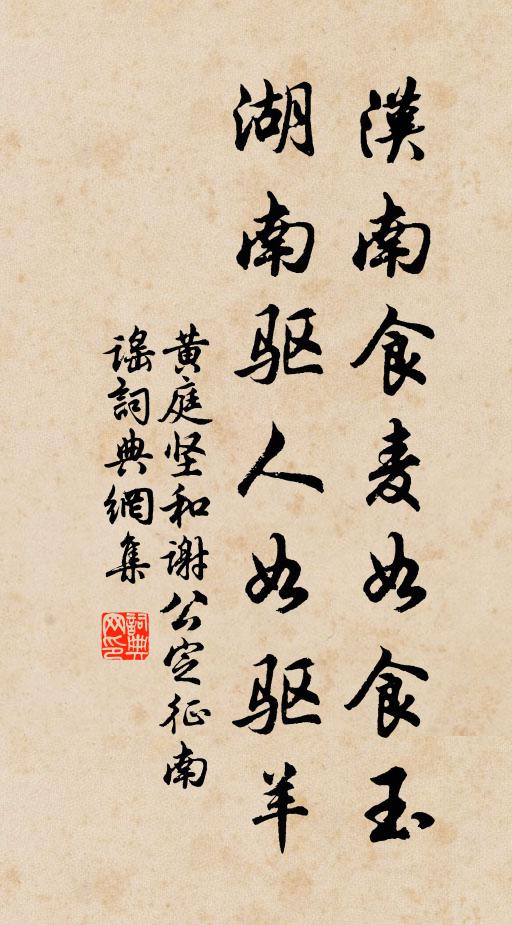 漢南食麦如食玉
湖南驱人如驱羊
黄庭坚和谢公定征南
謡詞典網集
詞典
网印